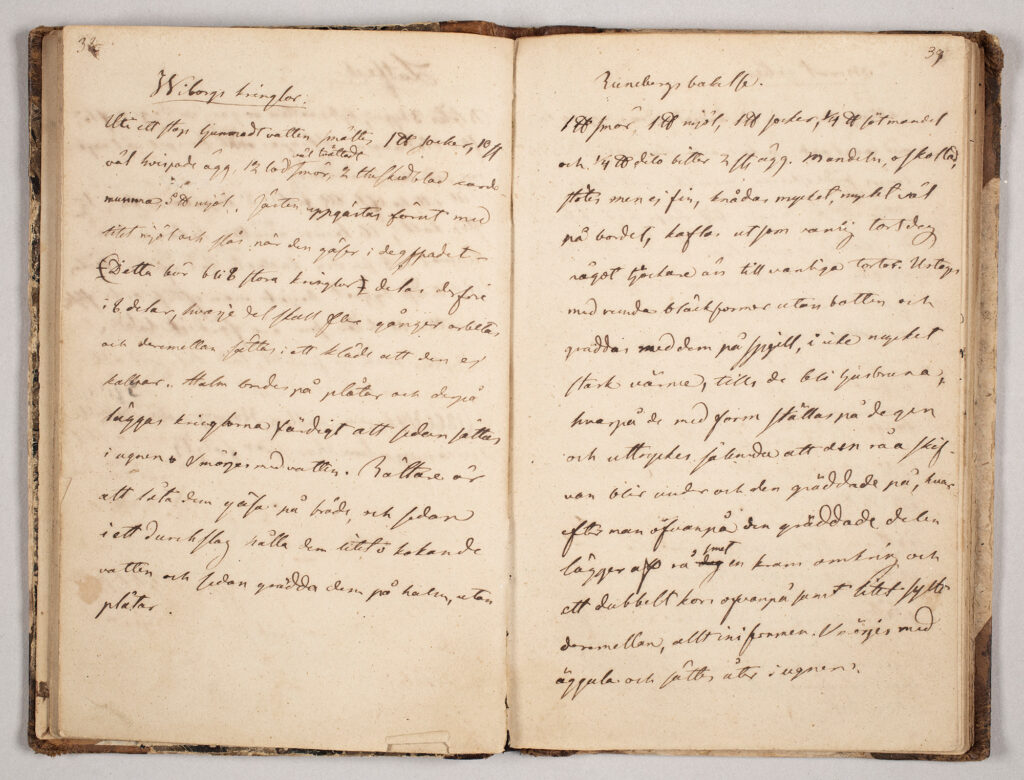 38
Wiborgs kringlor.
Uti ett stop ljummadt vatten sättes 1 ℔ socker, 10 st
väl hvispade ägg, 12 lod väl tvättade smör, 2 theskedblad karde-
mumma, 5 ℔ mjöl. Jästen uppgästas förut med
litet mjöl och slås, när den gäser i degspadet –
(Detta bör bli 8 stora kringlor) delas derföre
i 8 delar, hvarje del skall flere gånger arbetas
och deremellan sättas i ett kläde att den ej
kallnar. Halm bredes på plåtar och derpå
läggas kringlorna färdigt att sedan sättas
i ugnen. Smörjes med vatten. Bättare är
att låta dem gäsa på bräde, och sedan
i ett durchslag hålla dem litet i kokande
vatten och sedan grädda dem på halm, utan
plåtar.
39
Runebergsbakelse.
1 ℔ smör, 1 ℔ mjöl, 1 ℔ socker, 1/4 ℔ sötmandel
och 1/4 ℔ dito bitter 2 st ägg. Mandeln, oskållad,
stötes men ej fin, knådas mycket, mycket väl
på bordet, kaflas ut som vanlig tortdeg
något tjockare än till vanliga tortor. Uttages
med runda bläckformor utan botten och
gräddas med dem på spjell, i icke mycket
stark värme, tills de bli ljusbruna,
hvarpå de med form ställas på degen
och uttryckes sålunda att den råa skif-
van blir under och den gräddade på, hvar
efter man ofvanpå den gräddade delen
lägger af rå smet en krans omkring och
ett dubbelt kors ofvanpå samt litet sylt
deremellan, allt ini formen. Smörjes med
äggula och sättes åter i ugnen.